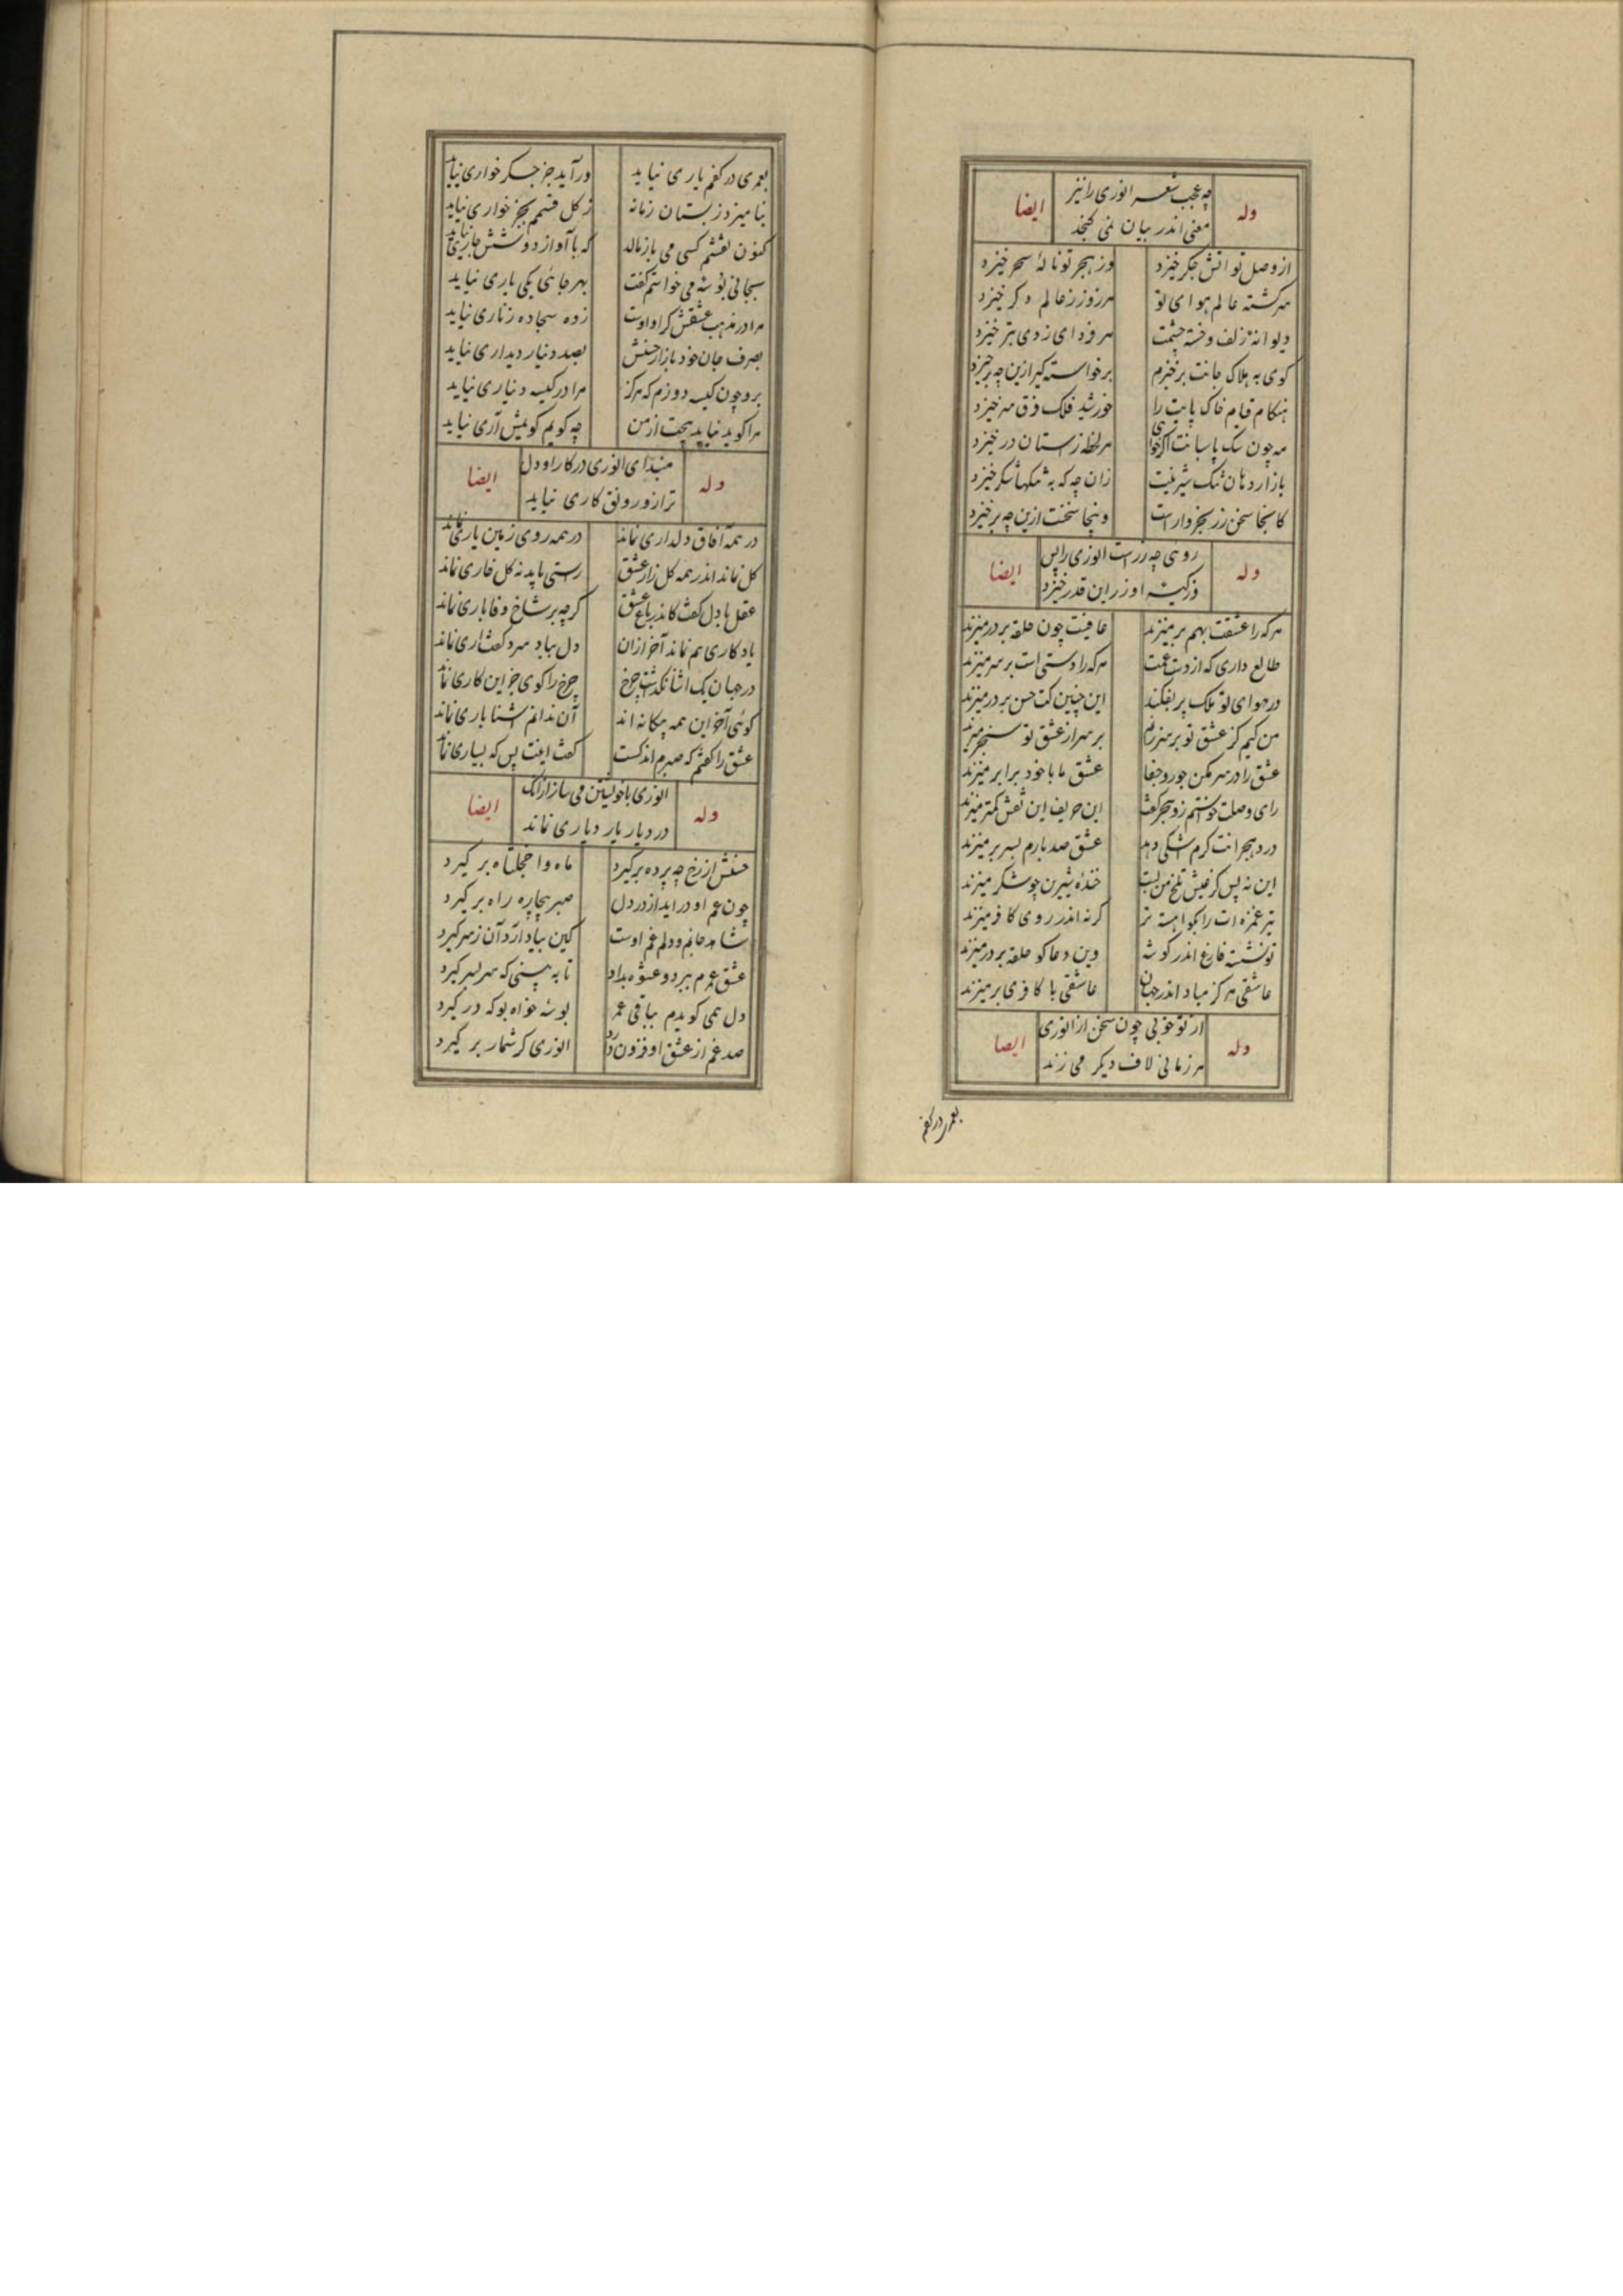 وله چه عجب شعر انوری را نیز ایضا
معنی اندر بیان نمی کنجد
از وصل تو اتش جکر خیزد وز هجر تو نالهٔ سحر خیزد
سرکشته عالم هوای تو هر روز ز عالم دکر خیزد
دیوانهٔ زلف و خسته چشمت هر فردای ز دی بتر خیزد
کوی به هلاک جانت برخیزم برخواسته کیر ازین چه برخیزد
هنکام قیام خاک پایت را خورشید فلک فرق سر خیزد
مه چون سک پاسبانت اکر خواهی هر لحظه ز استان در خیزد
بازار دهان تنک شیرینت زان چه که به تنکها شکر خیزد
کانجا سخن زر بخروار است وینجا سخنت ازین چه برخیزد
وله روئی چه زر است انوری را پس ایضا
وز کیسه او زر این قدر خیزد
هرکه را عشقت بهم بر میزند عافیت چون حلقه بر در میزند
طالع داری که از دست غمت هرکه را دستی است بر سر میزند
در هوای تو ملک پر بفکند این چنین کت حسن بر در میزند
من کیم کز عشق تو بر سر زنم بر سر از عشق تو سنجر میزند
عشق را در سر مکن جور و جفا عشق ما با خود برابر میزند
رای وصلت خواستم زد هجر کفت این حریف این نقش کمتر میزند
درد هجرانت کرم اشکی دهد عشق صد بارم بسر بر میزند
این نه پس کز عیش تلخ من لبت خندهٔ شیرین چو شکر میزند
تیر غمزه ات را بکو اهسته تر کرنه اندر روی کافر میزند
تو نشسته فارغ اندر کوشه وین دعاکو حلقه بر در میزند
عاشقی هرکز مباد اندر جهان عاشقی با کافری بر میزند
وله از تو خوبی چون سخن از انوری ایضا
هر زمانی لاف دیکر می زند
بعمری در کفم
بعمری در کفم یاری نیاید ور آید جز جکر خواری نیاید
بنامیزد ز بستان زمانه ز کل قسمم بجز خواری نیاید
کنون نقشم کسی می باز مالد که با آواز دو شش جاری نیاید
بجانی بوسه می خواستم کفت بهر جائی یکی باری نیاید
مرا در مذهب عشقش کراو اوست زده سجاده زناری نیاید
بصرف جان خود بازار حسنش بصد دینار دیداری نیاید
برو چون کیسه دوزم که هرکز مرا در کیسه دیناری نیاید
مرا کوید نیاید هیچت از من چه کویم کویمش آری نیاید
وله مبند ای انوری در کار او دل ایضا
ترا زو رونق کاری نیاید
در همه آفاق دلداری نماند در همه روی زمین یاری نماند
کل نماند اندر همه کل زار عشق راستی باید نه کل خاری نماند
عقل با دل کفت کاندر باغ عشق کرچه بر شاخ وفا باری نماند
یادکاری هم نماند آخر ازان دل بباد سرد کفت اری نماند
در جهان یک اشنا نکذاشت چرخ چرخ را کوی جز این کاری نماند
کوئی آخر این همه بیکانه اند آن ندانم اشنا باری نماند
عشق را کفتم که صبرم اندکست کفت اینت پس که بسیاری نماند
وله انوری با خویشتن می ساز ازانک ایضا
در دیار یار دیاری نماند
حسنش از رخ چه پرده برکیرد ماه واخجلتاه بر کیرد
چون غم او دراید از در دل صبر بیچاره راه بر کیرد
شاهد جانم و دلم غم اوست کین بیاد ارد آن ز سر کیرد
عشق عمرم ببرد و عشوه بداد تا به بینی که سر بسر کیرد
دل همی کویدم بباقی عمر بوسه خواه بوکه در کیرد
صد غم از عشق او فزون دارد انوری کر شمار بر کیرد